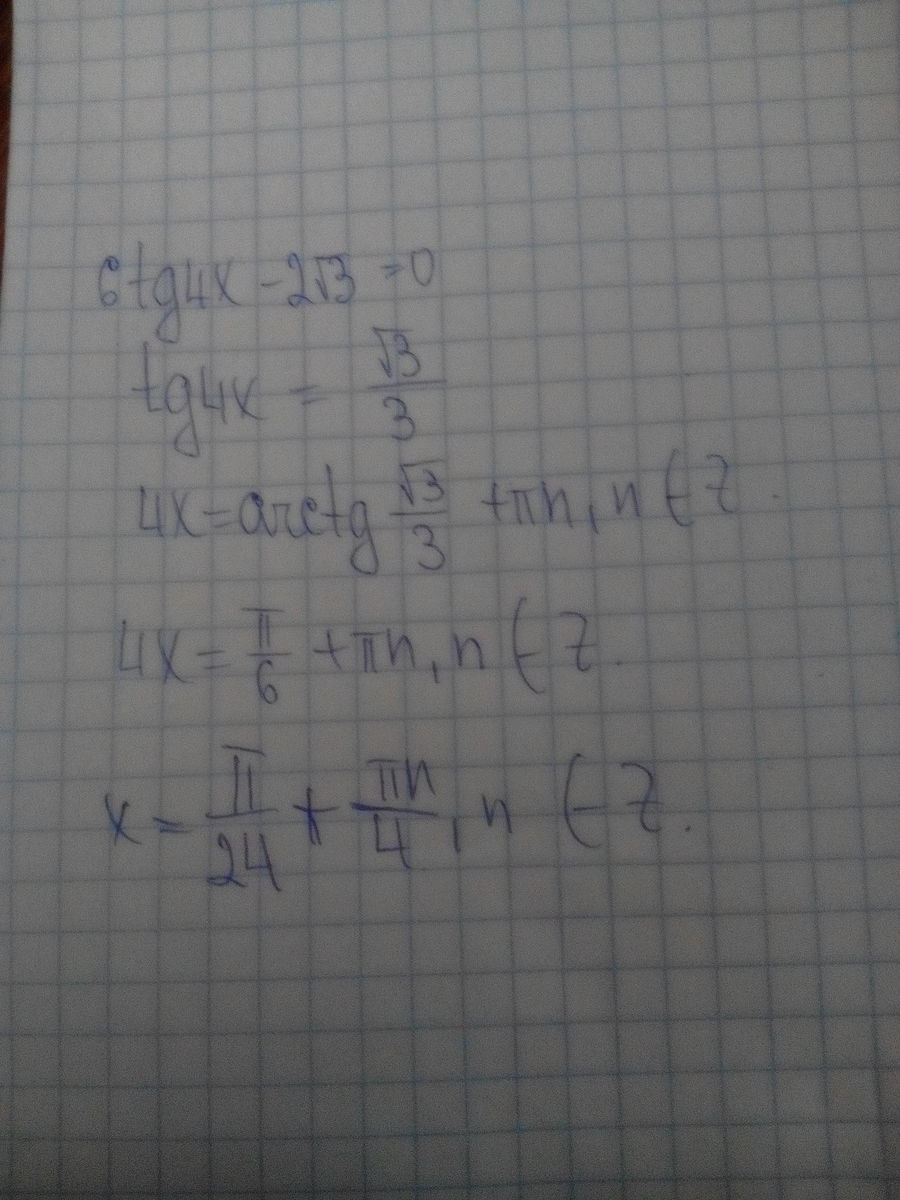 6tg4x - 2√3 = 0
tg4x = √3/3
4x = arctg √3/3 + πn, n ∈ Z.
4x = π/6 + πn, n ∈ Z.
x = π/24 + πn/4, n ∈ Z.